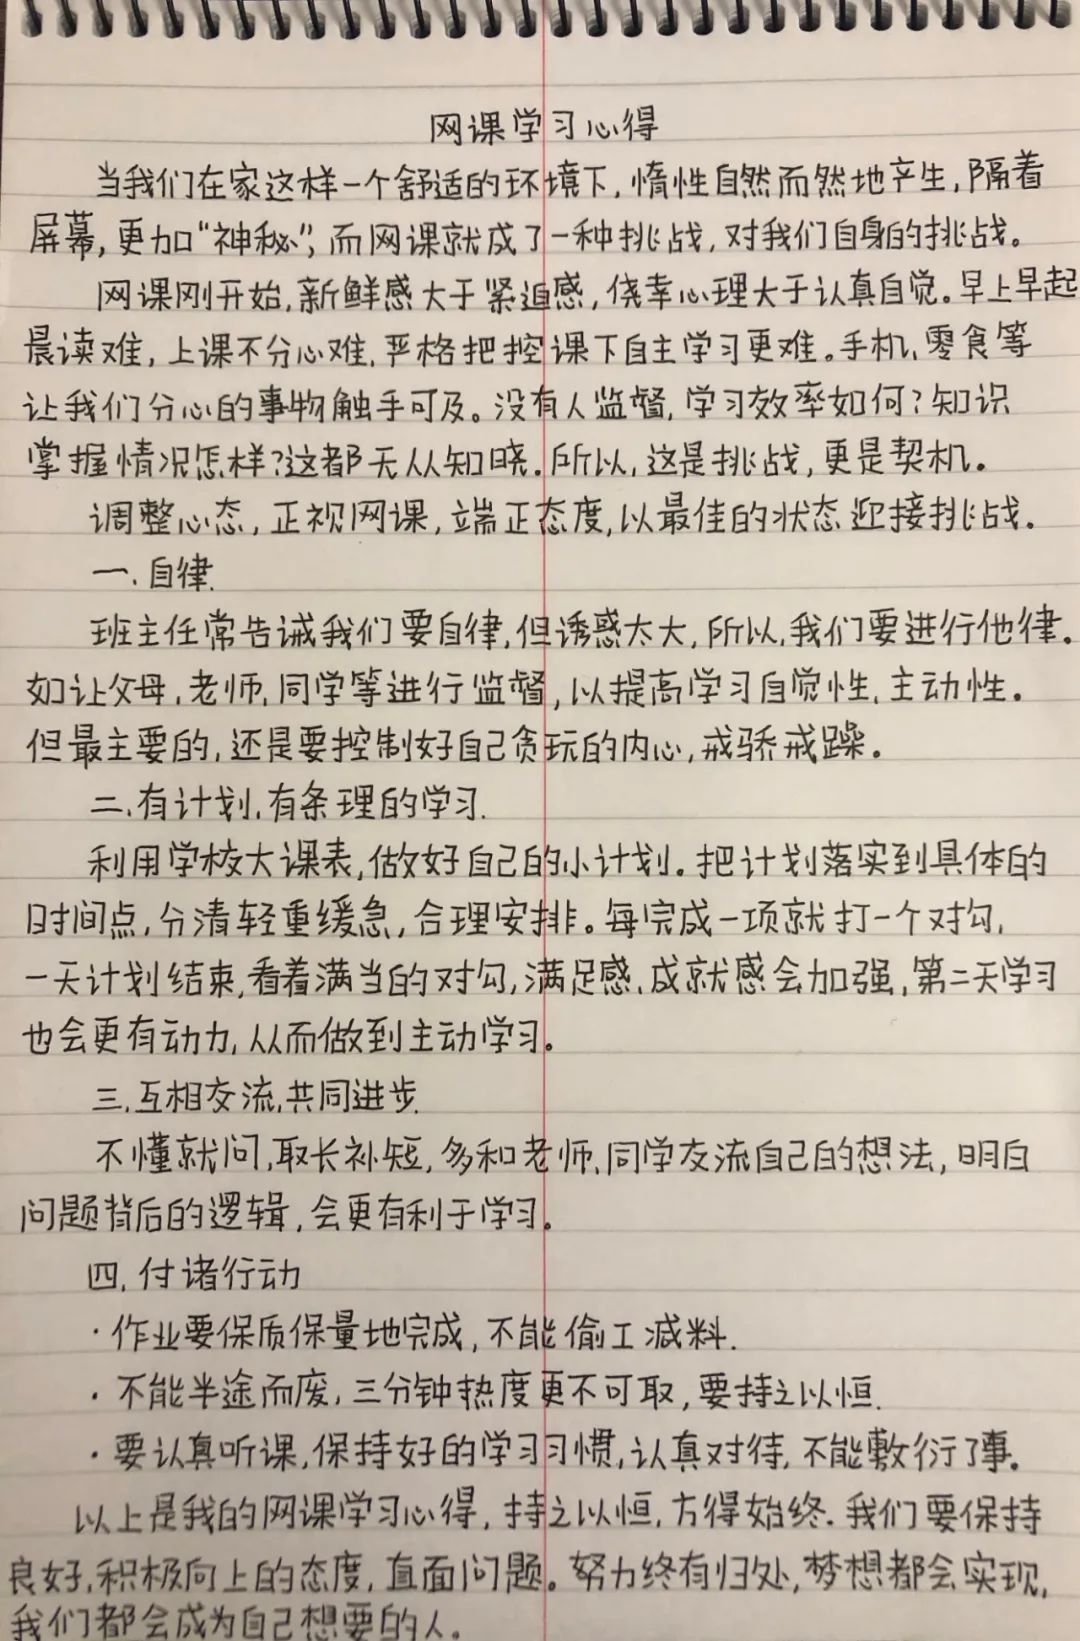 网课学习心得
当我们在家这样一个舒适的环境下,惰性自然而然地产生,隔着
屏幕,更加“神秘”,而网课就成了一种挑战,对我们自身的挑战。
网课刚开始,新鲜感大于紧迫感,侥幸心理大于认真自觉。早上早起
晨读难,上课不分心难,严格把控课下自主学习更难。手机、零食等
让我们分心的事物触手可及。没有人监督,学习效率如何?知识
掌握情况怎样?这都无从知晓.所以,这是挑战,更是契机。
调整心态,正视网课,端正态度,以最佳的状态迎接挑战.
一.自律.
班主任常告诫我们要自律,但诱惑太大,所以,我们要进行他律.
如让父母,老师,同学等进行监督,以提高学习自觉性、主动性.
但最主要的,还是要控制好自己贪玩的内心,戒骄戒躁。
二.有计划,有条理的学习.
利用学校大课表,做好自己的小计划。把计划落实到具体的
时间点,分清轻重缓急,合理安排。每完成一项就打一个对勾,
一天计划结束,看着满当的对勾,满足感、成就感会加强,第二天学习
也会更有动力,从而做到主动学习。
三.互相交流,共同进步.
不懂就问,取长补短,多和老师、同学交流自己的想法,明白
问题背后的逻辑,会更有利于学习。
四.付诸行动
·作业要保质保量地完成,不能偷工减料.
·不能半途而废,三分钟热度更不可取,要持之以恒.
·要认真听课,保持好的学习习惯,认真对待,不能敷衍了事.
以上是我的网课学习心得,持之以恒,方得始终.我们要保持
良好,积极向上的态度,直面问题。努力终有归处,梦想都会实现,
我们都会成为自己想要的人。